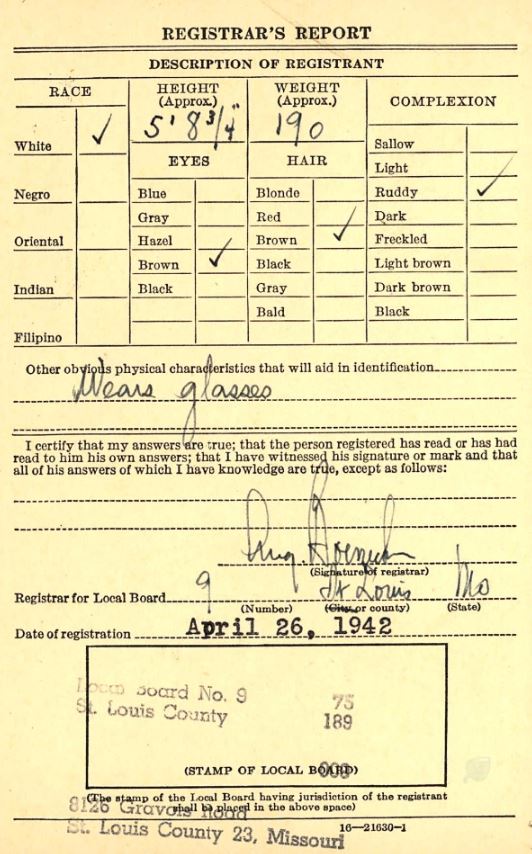 REGISTRAR'S REPORT
DESCRIPTION OF REGISTRANT
RACE
HEIGHT
(Approx.)
WEIGHT
(Approx.)
COMPLEXION
5' 8 3/4"
190
White ✓
Negro
Oriental
Indian
Filipino
EYES
Blue
Gray
Hazel
Brown ✓
Black
HAIR
Blonde
Red
Brown ✓
Black
Gray
Bald
Sallow
Light
Ruddy ✓
Dark
Freckled
Light brown
Dark brown
Black
Other obvious physical characteristics that will aid in identification
Wears glasses
I certify that my answers are true; that the person registered has read or has had
read to him his own answers; that I have witnessed his signature or mark and that
all of his answers of which I have knowledge are true, except as follows:
Aug.
(Signature of registrar)
Registrar for Local Board 9 St Louis Mo
(Number) (City or county) (State)
Date of registration April 26, 1942
Local Board No. 9 75
St. Louis County 189
(STAMP OF LOCAL BOARD)
(The stamp of the Local Board having jurisdiction of the registrant
shall be placed in the above space)
8126 Gravois Road
St. Louis County 23, Missouri
16—21630-1